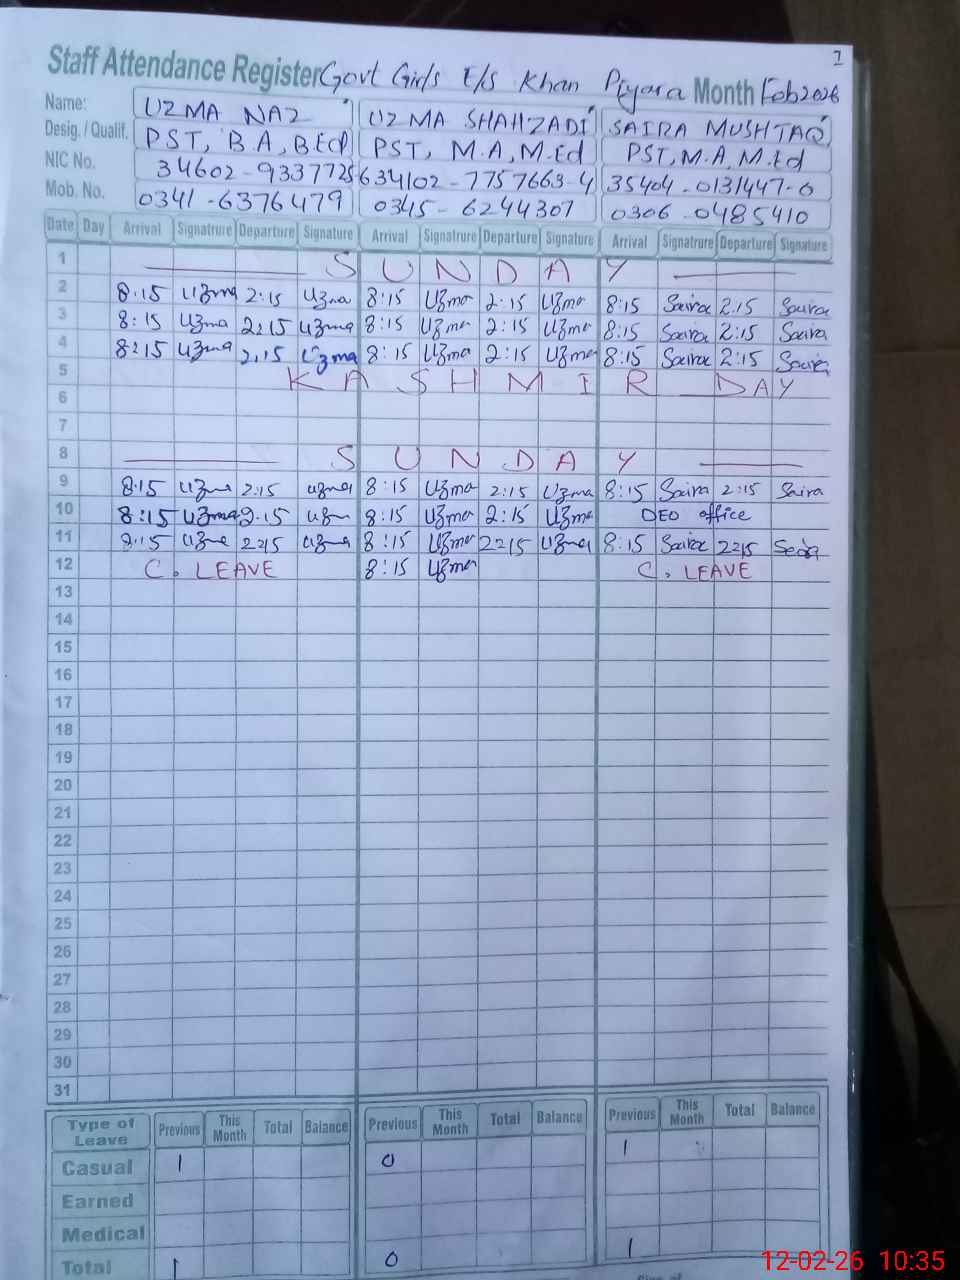 1
Staff Attendance Register Govt Girls E/S Khan Piyara Month Feb 2026
Name: UZMA NAZ UZMA SHAHZADI SAIRA MUSHTAQ
Desig. / Qualif. PST, B.A, B.ED PST, M.A, M.Ed PST, M.A, M.Ed
NIC No. 34602-9337728 634102-7757663-4 35404-0131447-0
Mob. No. 0341-6376479 0345-6244307 0306-0485410
Date Day Arrival Signatrure Departure Signature Arrival Signatrure Departure Signature Arrival Signatrure Departure Signature
1 SUNDAY
2 8:15 Uzma 2:15 Uzma 8:15 Uzma 2:15 Uzma 8:15 Saira 2:15 Saira
3 8:15 Uzma 2:15 Uzma 8:15 Uzma 2:15 Uzma 8:15 Saira 2:15 Saira
4 8:15 Uzma 2:15 Uzma 8:15 Uzma 2:15 Uzma 8:15 Saira 2:15 Saira
5 KASHMIR DAY
6
7
8 SUNDAY
9 8:15 Uzma 2:15 Uzma 8:15 Uzma 2:15 Uzma 8:15 Saira 2:15 Saira
10 8:15 Uzma 2:15 Uzma 8:15 Uzma 2:15 Uzma DEO office
11 8:15 Uzma 2:15 Uzma 8:15 Uzma 2:15 Uzma 8:15 Saira 2:15 Saira
12 C. LEAVE 8:15 Uzma C. LEAVE
13
14
15
16
17
18
19
20
21
22
23
24
25
26
27
28
29
30
31
Type of Leave Previous This Month Total Balance Previous This Month Total Balance Previous This Month Total Balance
Casual 1 0 1
Earned
Medical
Total 1 0 1
12-02-26 10:35